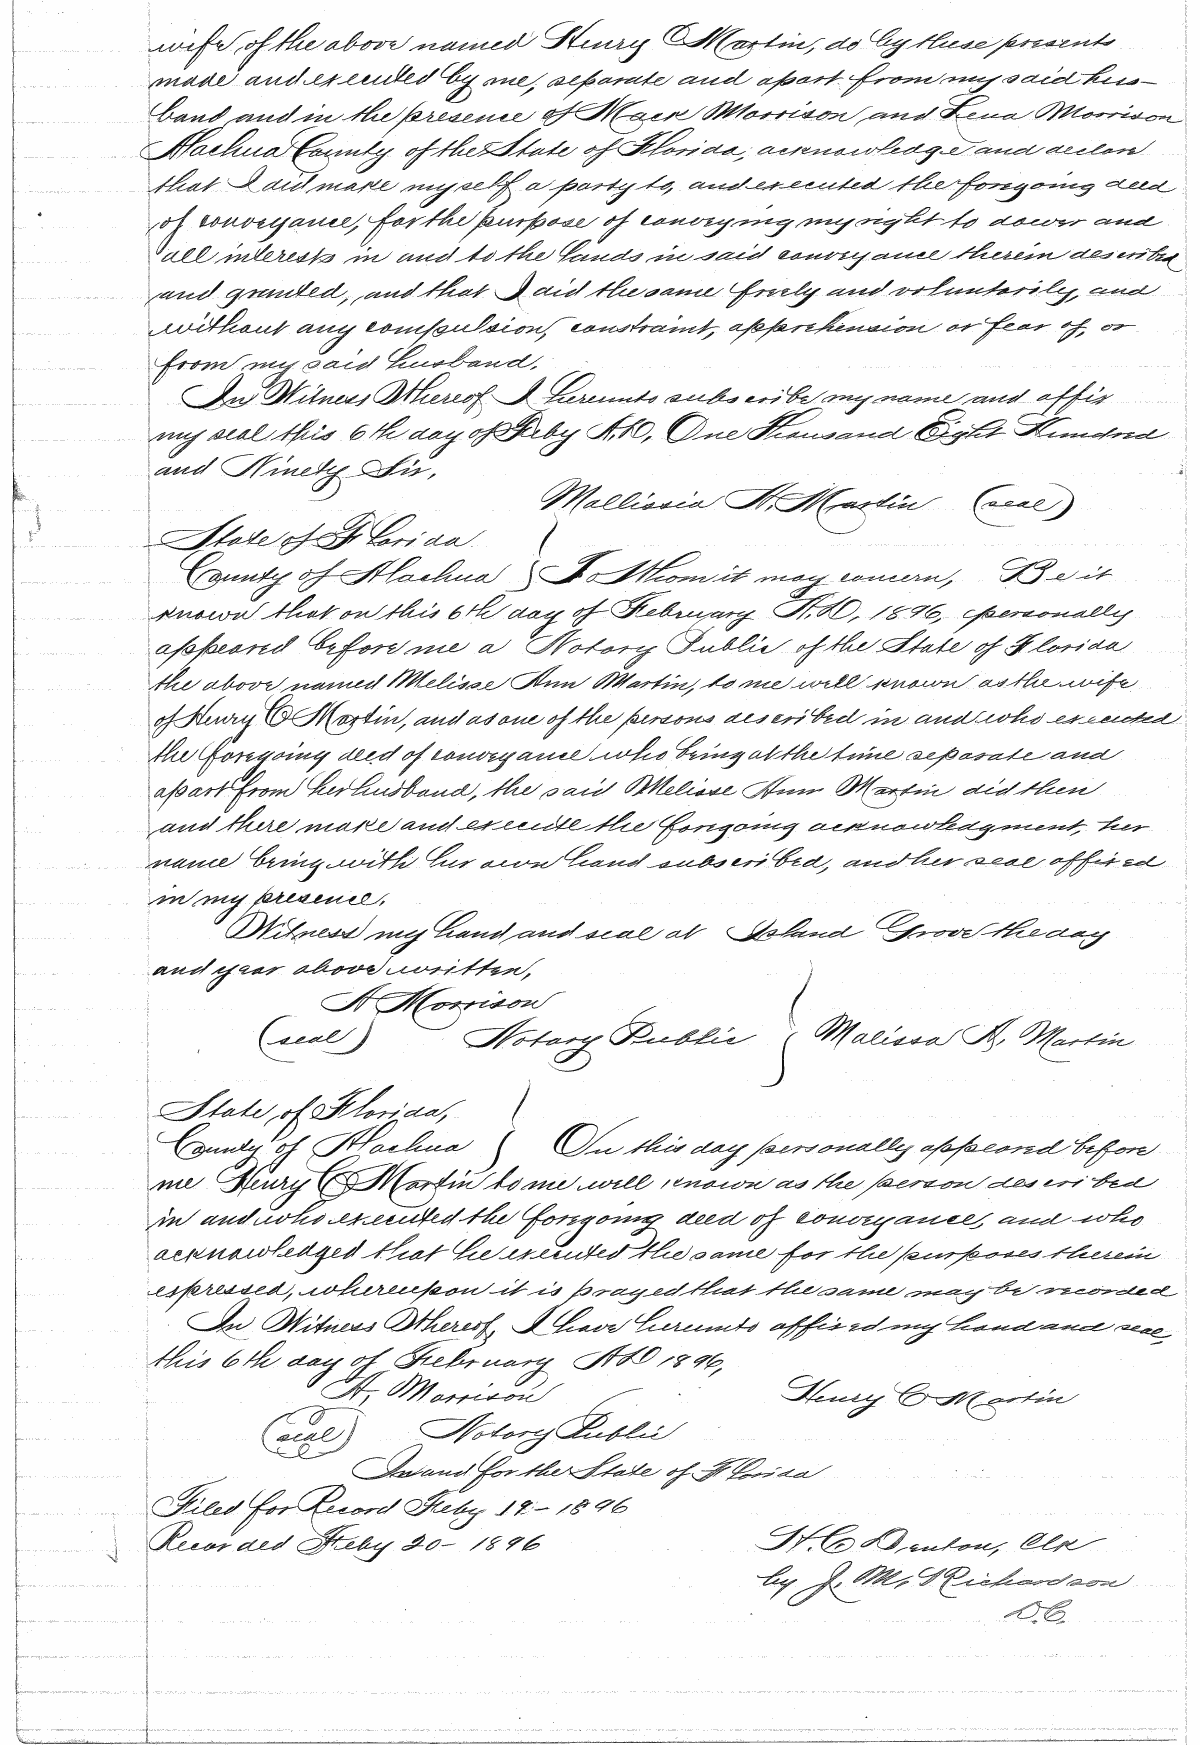 wife of the above named Henry C Martin, do by these presents
made and executed by me, separate and apart from my said hus-
band and in the presence of Mack Morrison and Lena Morrison
Alachua County of the State of Florida, acknowledge and declare
that I did make myself a party to, and executed the foregoing deed
of conveyance, for the purpose of conveying my right to dower and
all interests in and to the lands in said conveyance therein described
and granted, and that I did the same freely and voluntarily, and
without any compulsion, constraint, apprehension or fear of, or
from my said husband.
In Witness Whereof I hereunto subscribe my name and affix
my seal this 6th day of Feby A.D, One Thousand Eight Hundred
and Ninety Six.
Mallissia A. Martin (seal)
State of Florida
County of Alachua } To Whom it may concern, Be it
known that on this 6th day of February A.D, 1896, personally
appeared before me a Notary Public of the State of Florida
the above named Melisse Ann Martin, to me well known as the wife
of Henry C Martin, and as one of the persons described in and who executed
the foregoing deed of conveyance who being at the time separate and
apart from her husband, the said Melisse Ann Martin did then
and there make and execute the foregoing acknowledgment, her
name being with her own hand subscribed, and her seal affixed
in my presence.
Witness my hand and seal at Island Grove the day
and year above written,
A Morrison
(seal) Notary Public } Malissa A. Martin
State of Florida,
County of Alachua } On this day personally appeared before
me Henry C Martin to me well known as the person described
in and who executed the foregoing deed of conveyance, and who
acknowledged that he executed the same for the purposes therein
expressed, whereupon it is prayed that the same may be recorded
In Witness Whereof, I have hereunto affixed my hand and seal,
this 6th day of February AD 1896,
A. Morrison Henry C Martin
(seal) Notary Public
In and for the State of Florida
Filed for Record Feby 19- 1896
Recorded Feby 20- 1896 H. C. Denton, Clk
by J. M. Richardson
D.C.